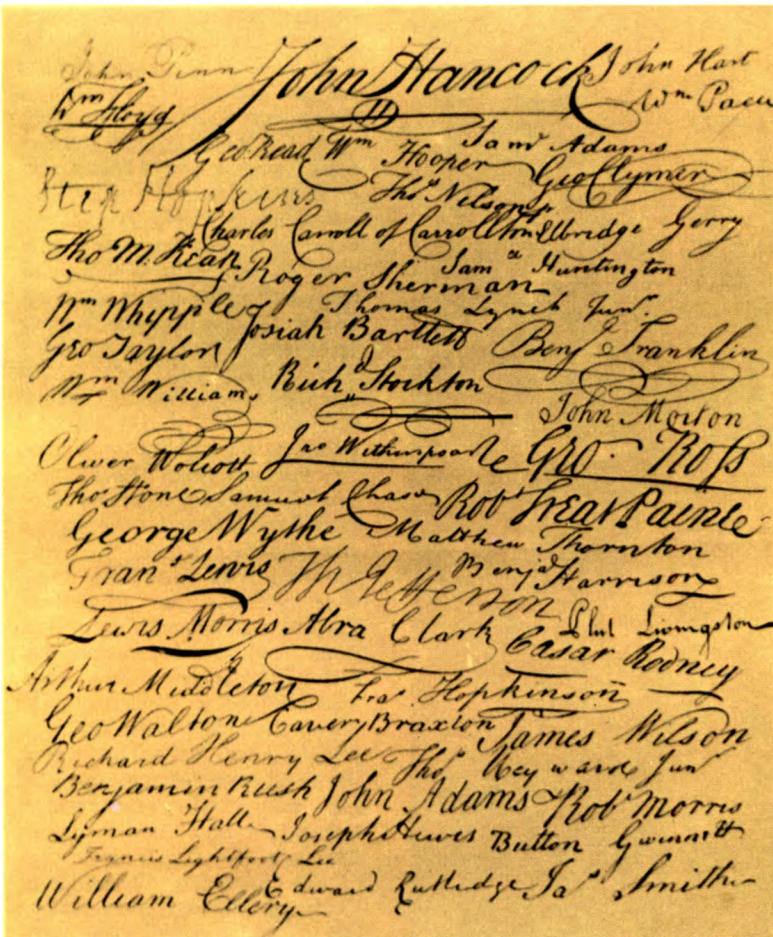 John Penn John Hancock John Hart
Wm Floyd Wm Paca
Geo Read Wm Hooper Saml Adams
Step Hopkins Thos Nelson jr Geo Clymer
Charles Carroll of Carrollton Elbridge Gerry
Tho M:Kean Roger Sherman Saml Huntington
Wm Whipple Josiah Bartlett Thomas Lynch Junr.
Geo Taylor Benj Franklin
Wm Williams Richd Stockton John Morton
Oliver Wolcott Jno Witherspoon Geo. Ross
Thos Stone Samuel Chase Robt Treat Paine
George Wythe Matthew Thornton
Frans Lewis Th Jefferson Benja Harrison
Lewis Morris Abra Clark Phil Livingston
Cæsar Rodney
Arthur Middleton Fras Hopkinson
Geo Walton Carter Braxton James Wilson
Richard Henry Lee Thos Heyward Junr
Benjamin Rush John Adams Robt Morris
Lyman Hall Joseph Hewes Button Gwinnett
Francis Lightfoot Lee
William Ellery Edward Rutledge Jas Smith